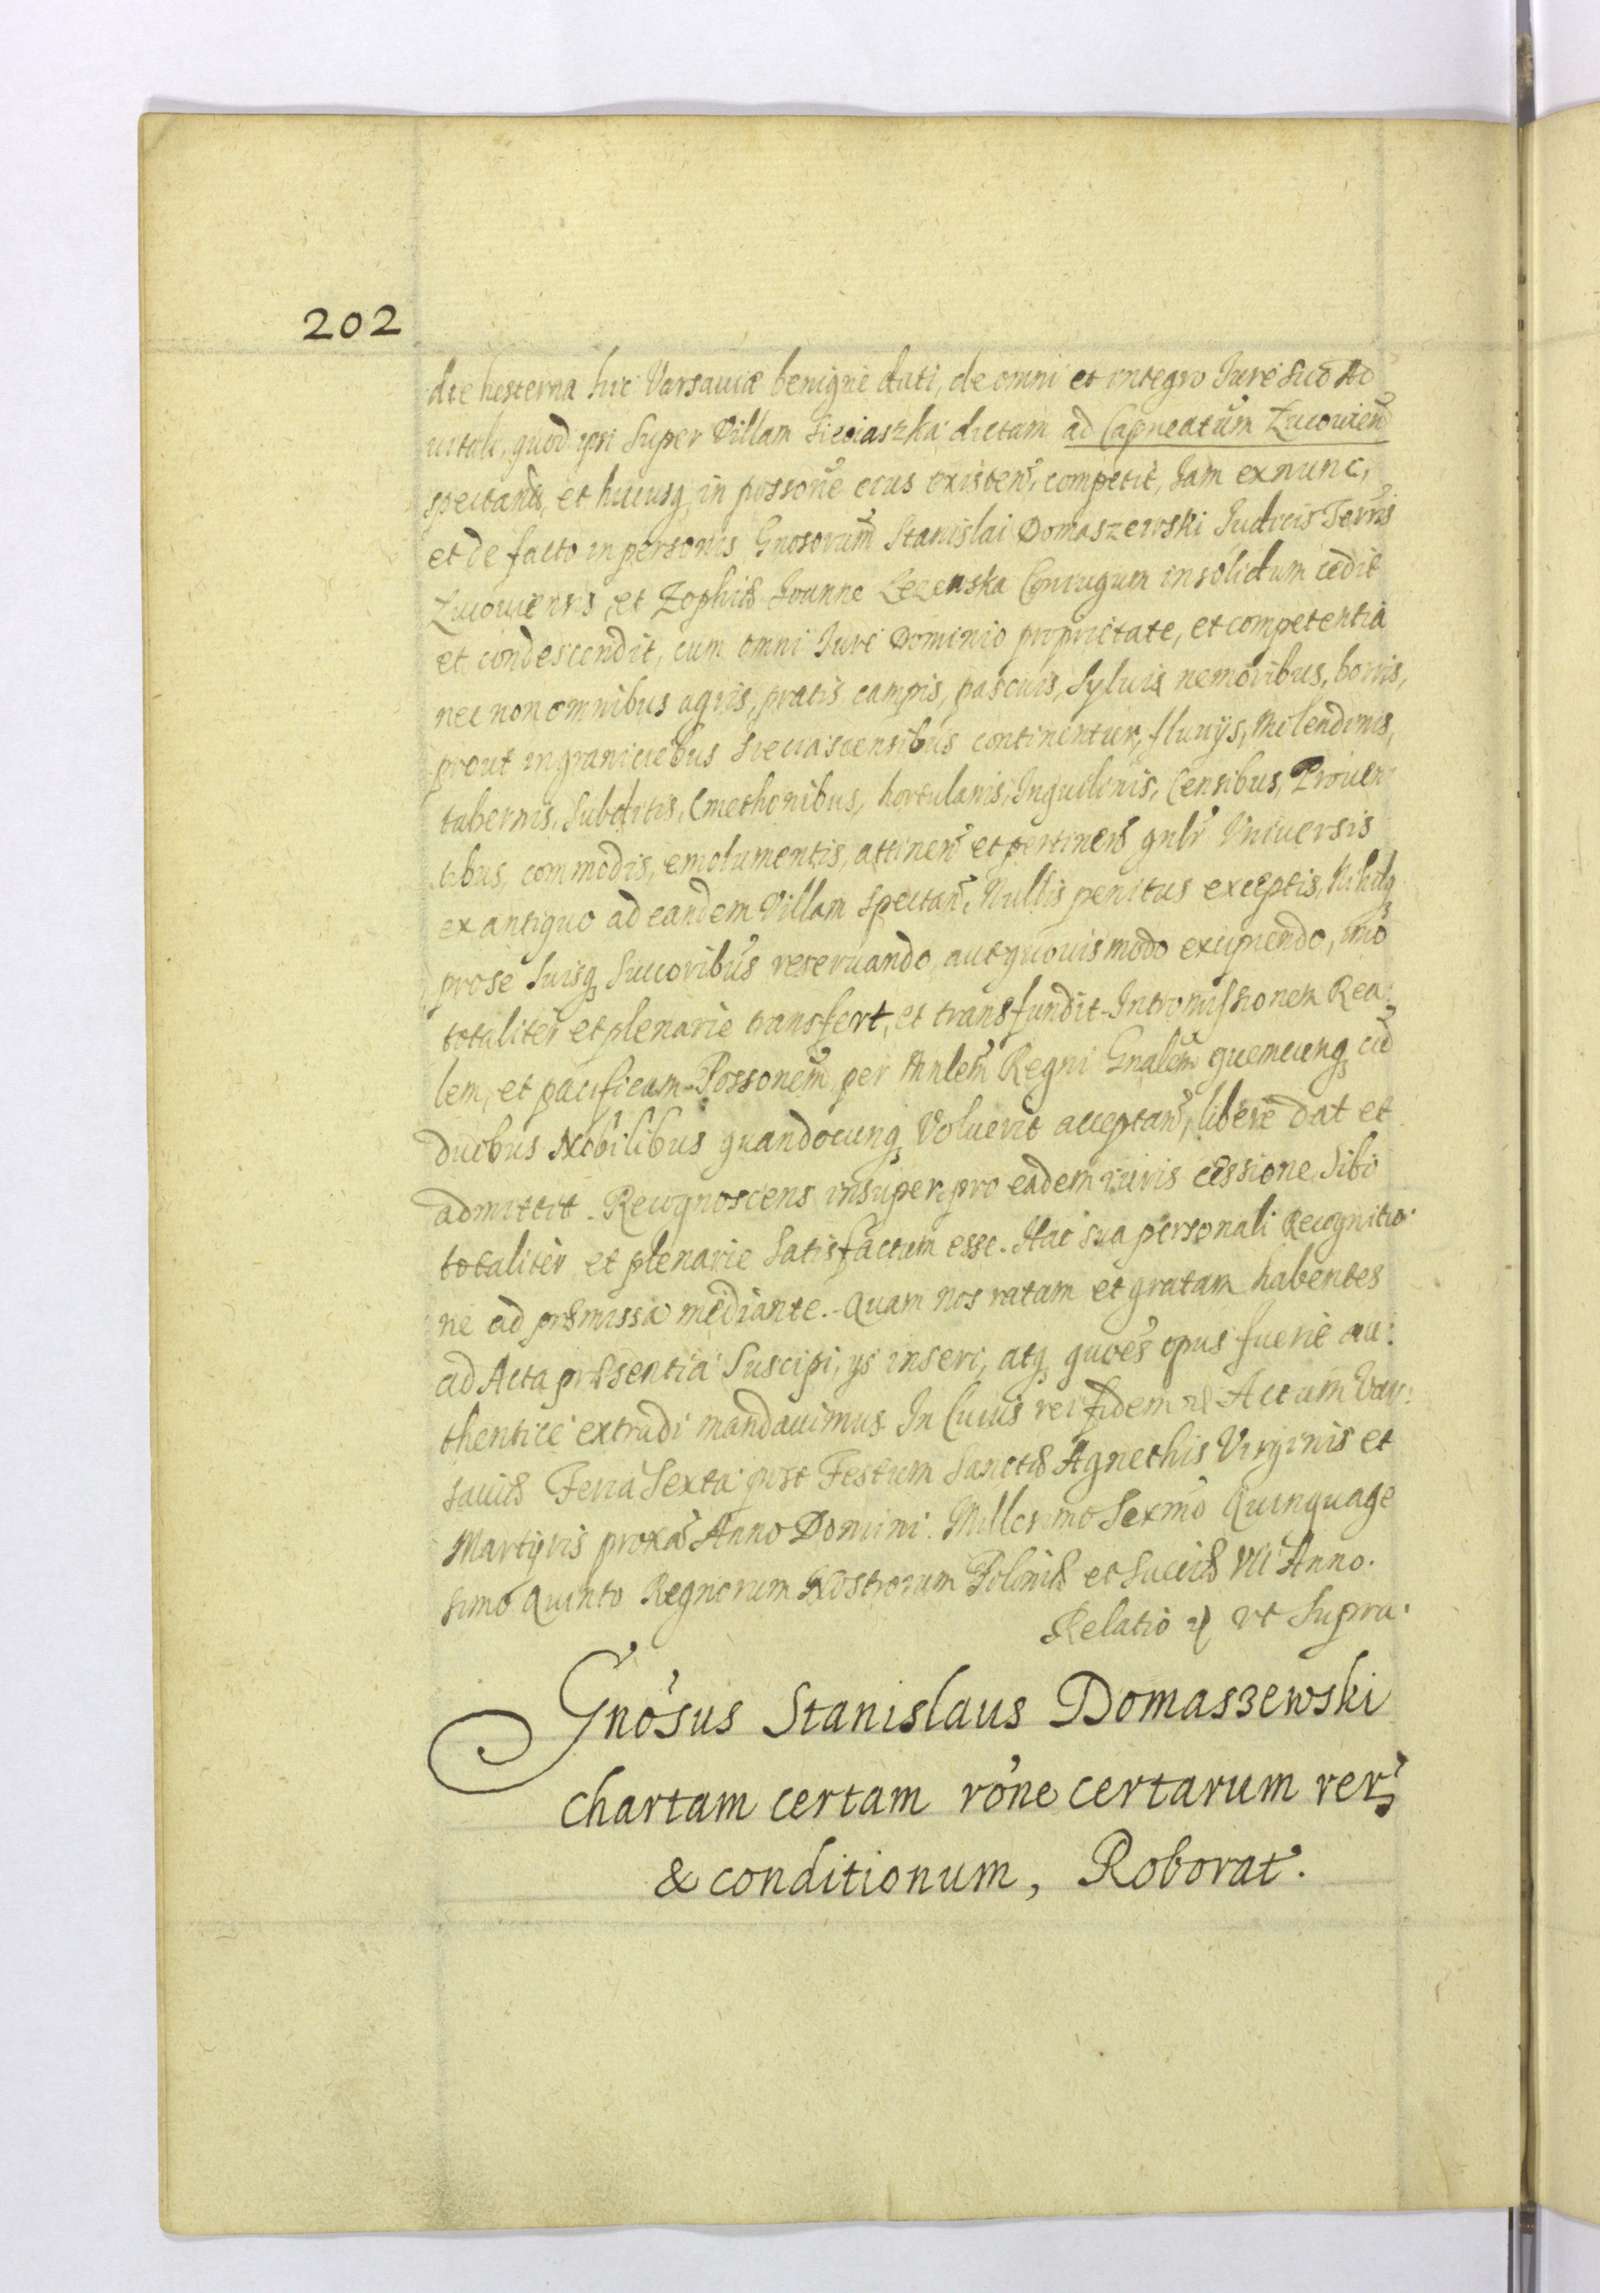 202
die hesterna hic Varsauiæ benigne dati, de omni et integro Iure suo Ad
uitali, quod ipsi super Villam Sieciaszka dictam ad Capneatum Lucouien
spectand, et hucusq in possone eius existen, competit, iam ex nunc,
et de facto in personis Gnosorum Stanislai Domaszewski Iudicis Terris
Lucouiensis, et Zophiæ Ioanne Lezenska Coniugum in solidum cedit
et condescendit, cum omni Iure Dominio proprietate, et competentia
nec non omnibus agris, pratis, campis, pascuis, syluis nemoribus, borris,
prout in graniciebus Sieciascensibus continentur, fluuijs, Molendinis,
tabernis, subditis, Cmethonibus, hortulanis, Inquilinis, Censibus, Prouen
tibus, commodis, emolumentis, attinen et pertinen gnlr Vniuersis
ex antiquo ad eandem Villam spectan, Nullis penitus exceptis, Nihilq
pro se suisq succoribus reseruando, aut quouis modo excipiendo, imo
totaliter et plenarie transfert, et transfundit. Intromissionem Rea:
lem, et pacificam Possonem per Mnlem Regni Gnalem quemcunq cu
duobus Nobilibus quandocunq Voluerit acceptan, libere dat et
admittit. Recognoscens insuper, pro eadem iuris cessione, sibi
totaliter et plenarie satisfactum esse. Hac sua personali Recognitio:
ne ad præmissa mediante. Quam nos ratam et gratam habentes
ad Acta præsentia suscipi, ijs inseri, atq quoēs opus fuerit au:
thentice extradi mandauimus In Cuius rei fidem &c Actum Var:
sauiæ Feria Sexta post Festum Sanctæ Agnethis Virginis et
Martyris proxa Anno Domini Millesimo Sexmo Quinquage
simo Quinto Regnorum Nostrorum Poloniæ et Sueciæ VII Anno.
Relatio &c vt Supra.
Gnōsus Stanislaus Domaszewski
chartam certam rōne certarum rerȝ
& conditionum, Roborat.